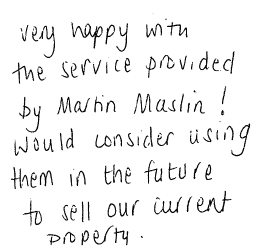 very happy with
the service provided
by Martin Maslin!
would consider using
them in the future
to sell our current
property.